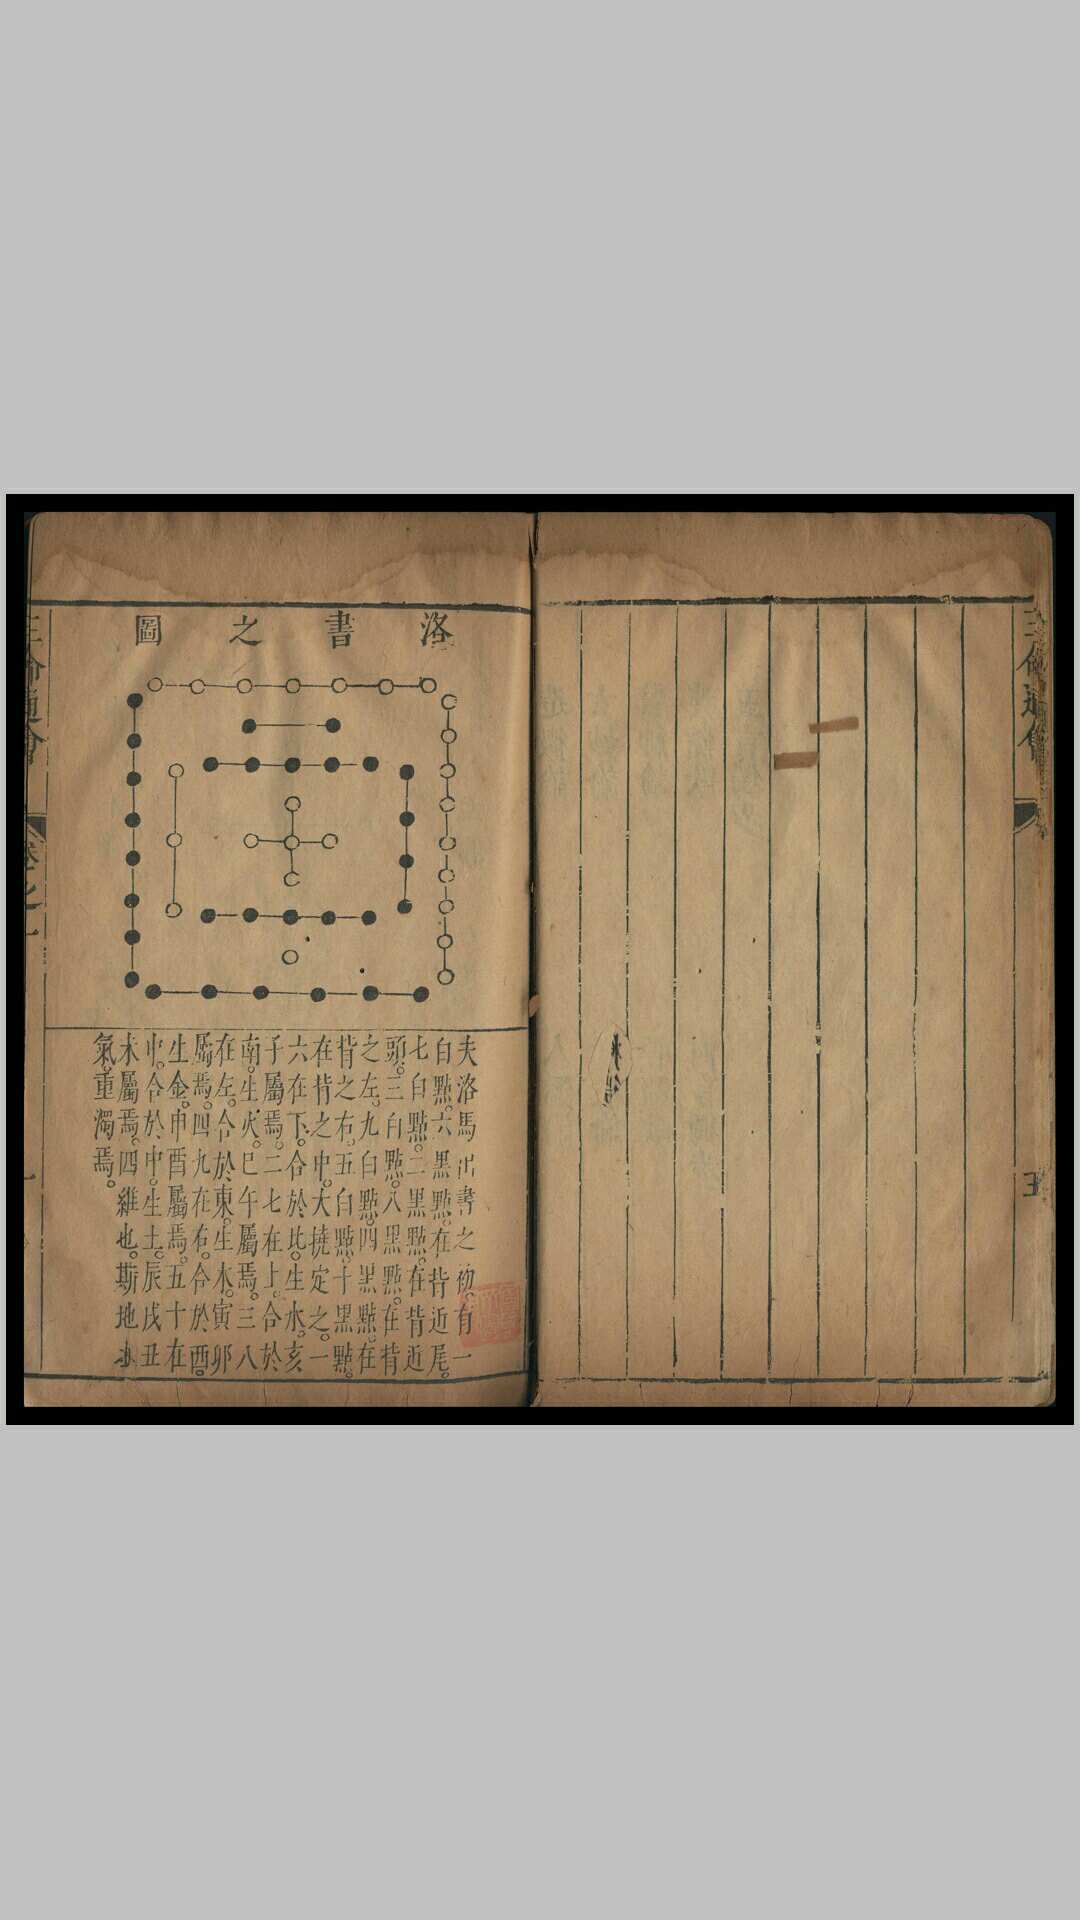 三命通會
五
洛書之圖
夫洛馬出書之初。有一
白點。六黑點。在背近尾。
七白點。二黑點。在背近
頭。三白點。八黑點。在背
之左。九白點。四黑點。在
背之右。五白點。十黑點。
在背之中。大撓定之。一
六在下。合於北。生水。亥
子屬焉。二七在上。合於
南。生火。巳午屬焉。三八
在左。合於東。生木。寅卯
屬焉。四九在右。合於酉。
生金。申酉屬焉。五十在
中。合於中。生土。辰戌丑
未屬焉。四維也。斯地
氣重濁焉。
三命通會
卷之一